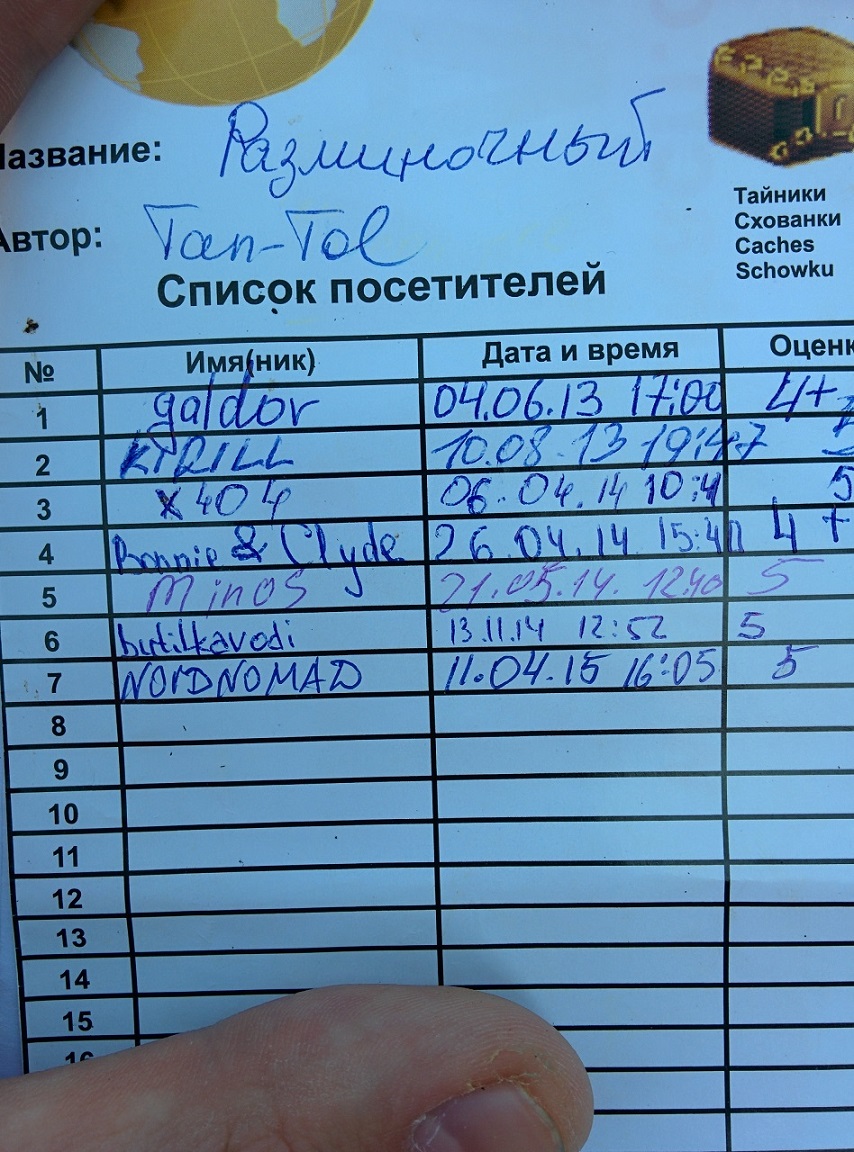 Название: Разминочный
Тайники
Схованки
Caches
Schowku
Автор: Tan-Tol
Список посетителей
№ Имя(ник) Дата и время Оценк
1 galdor 04.06.13 17:00 4+
2 KYRILL 10.08.13 19:47 5
3 x404 06.04.14 10:4 5
4 Bonnie & Clyde 26.04.14 15:40 4+
5 Minos 21.05.14. 12:40 5
6 butilkavodi 13.11.14 12:52 5
7 NORDNOMAD 11.04.15 16:05 5
8
9
10
11
12
13
14
15
16